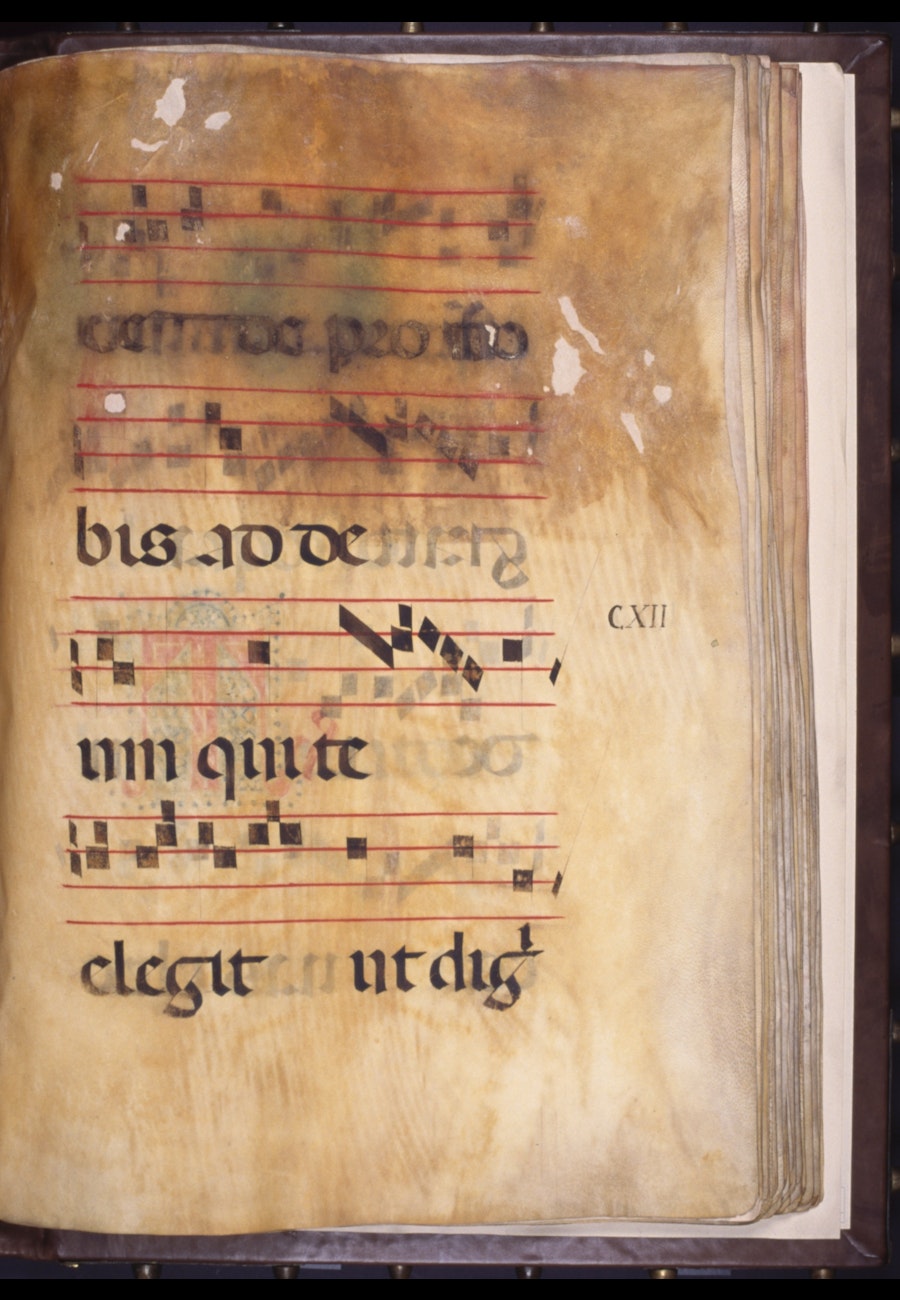 cede pro no
bis ad de
CXII
um qui te
elegit ut digⁱ